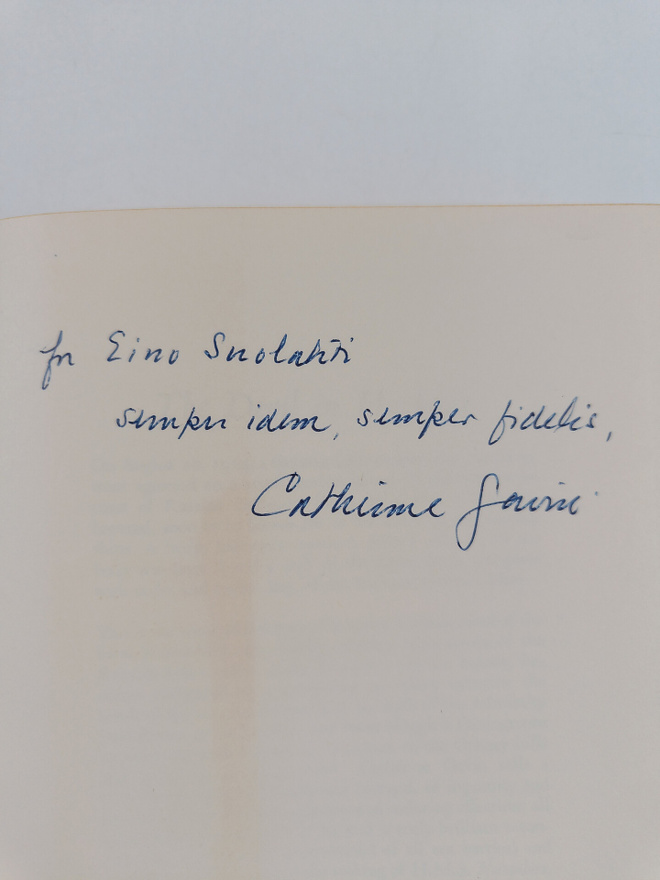 for Eino Suolahti
semper idem, semper fidelis,
Catherine Gavin